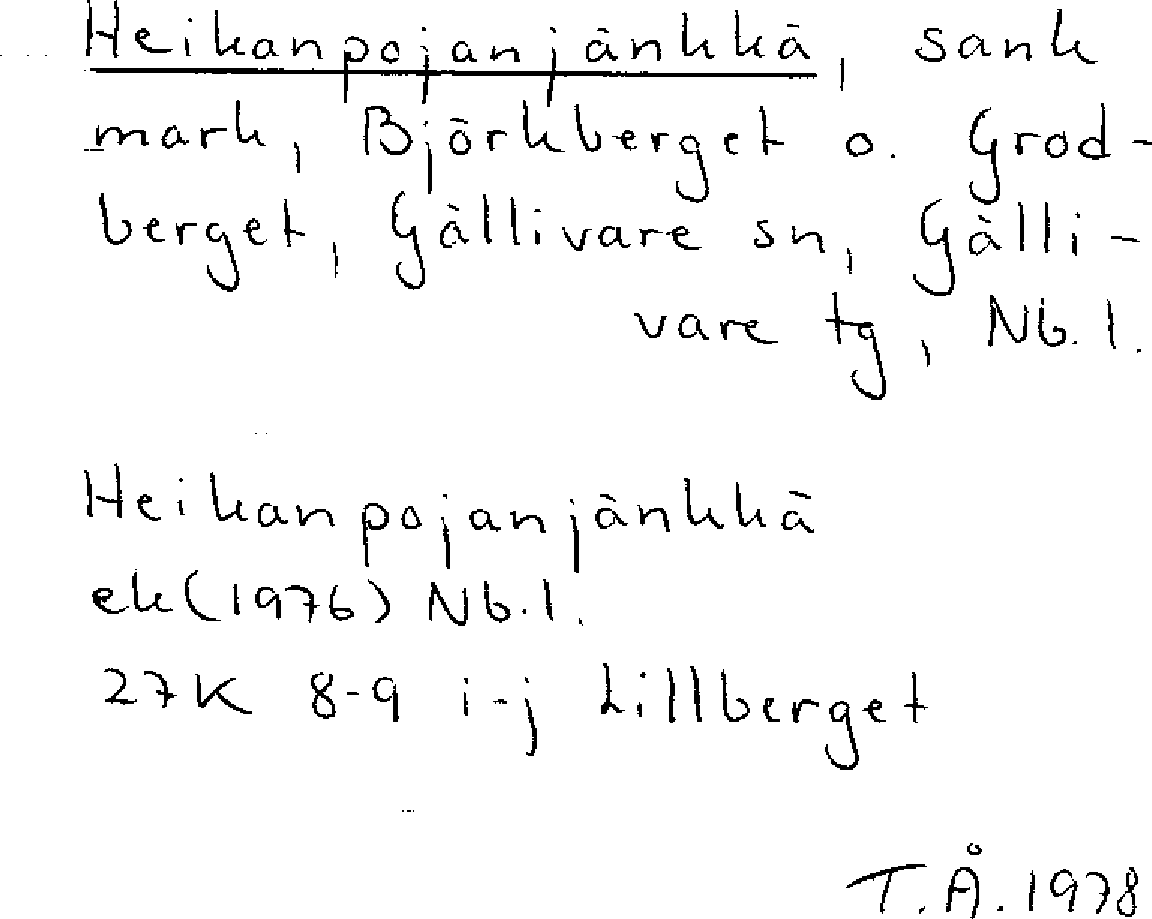 Heikanpojanjänkkä, sank
mark, Björkberget o. Grod-
berget, Gällivare sn, Gälli-
vare tg, Nb. l.
Heikanpojanjänkkä
ek (1976) Nb. l.
27K 8-9 i-j Lillberget
T.Å. 1978